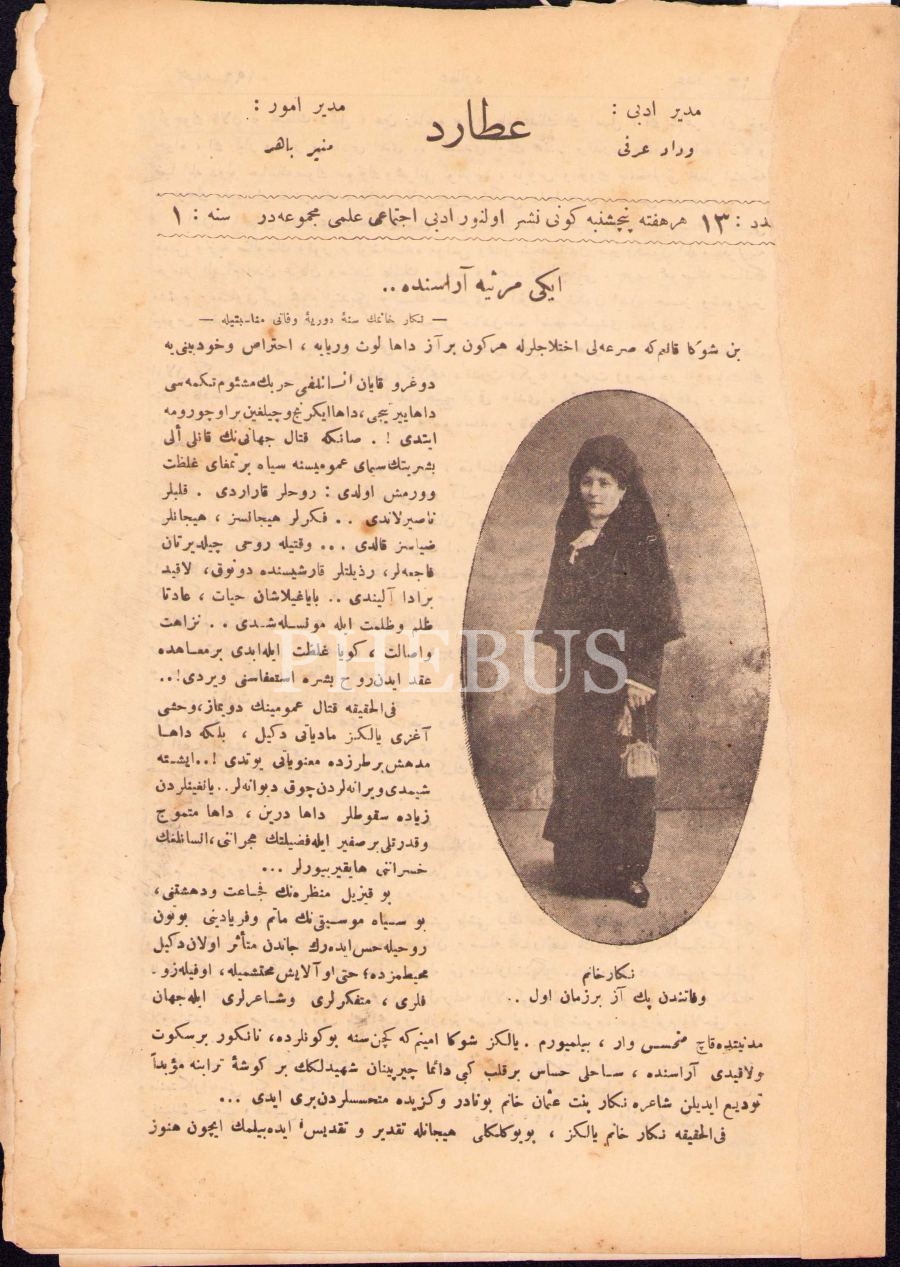 مدیر ادبی :
وداد عرفی
عطارد
مدیر امور :
منیر باهر
دد : ۱۳ هر هفته پنچشنبه كونی نشر اولنور ادبی اجتماعی علمی مجموعه‌در سنه : ۱
ایكی مرثیه آراسنده ..
— نكار خانمك سنهٔ دوریهٔ وفاتی مناسبتیله —
بن شوكا قانعم‌كه صرعه‌لی اختلاجلرله هركون بر آز داها لوث وریایه ، احتراص وخودبینی‌یه
دوغرو قایان انسانلغی حربك مشئوم تكمه‌سی
داها ییرتیجی ، داها ایكرنج وچیلغین بر اوچورومه
ایتدی ! . صانكه قتال جهانی‌نك قانلی ألی
بشریتك سیمای عمومیسنه سیاه بر تمغای غلظت
وورمش اولدی : روحلر قاراردی . قلبلر
ناصیرلاندی . . فكرلر هیجانسز ، هیجانلر
ضیاسز قالدی ... وقتیله روحی چیلدیرتان
فاجعه‌لر ، رذیلتلر قارشیسنده دونوق ، لاقید
برادا آلیندی .. بایاغیلاشان حیات ، عادتا
ظلم وظلمت ایله مونسله‌شدی . . نزاهت
واصالت ، كویا غلظت ایله ابدی بر معاهده
عقد ایدن روح بشره استعفاسنی ویردی ! ..
فی‌الحقیقه قتال عمومینك دویماز ، وحشی
آغزی یالكز مادیاتی دكیل ، بلكه داها
مدهش بر طرزده معنویاتی یوتدی ! .. ایشته
شیمدی ویرانه‌لردن چوق دیوانه‌لر .. یانغینلردن
زیاده سقوطلر داها درین ، داها متموج
وقدرتلی بر صفیر ایله فضیلتك هجراننی ، انسانلغك
خسراننی هایقیریورلر ...
بو قیزیل منظره‌نك فجاعت ودهشتنی ،
بو سیاه موسیقی‌نك ماتم وفریادینی بوتون
روحیله حس ایده‌رك جاندن متأثر اولان دكیل
محیطمزده ؛ حتی او آلایش محتشمیله ، اوفیله‌زو -
فلری ، متفكرلری وشاعرلری ایله جهان
نكار خانم
وفاتندن پك آز بر زمان اول ..
مدنیتده قاچ متحسس وار ، بیلمیورم . یالكز شوكا امینم كه كچن سنه بو كونلرده ، نانكور بر سكوت
ولاقیدی آراسنده ، ساحلی حساس بر قلب كبی دائما چیرپینان شهیدلكك بر كوشهٔ ترابنه مؤبداً
تودیع ایدیلن شاعره نكار بنت عثمان خانم بو نادر وكزیده متحسسلردن بری ایدی ...
فی‌الحقیقه نكار خانم یالكز ، بویوكلكلی هیجانله تقدیر و تقدیس ایده‌بیلمك ایچون هنوز
PHEBUS